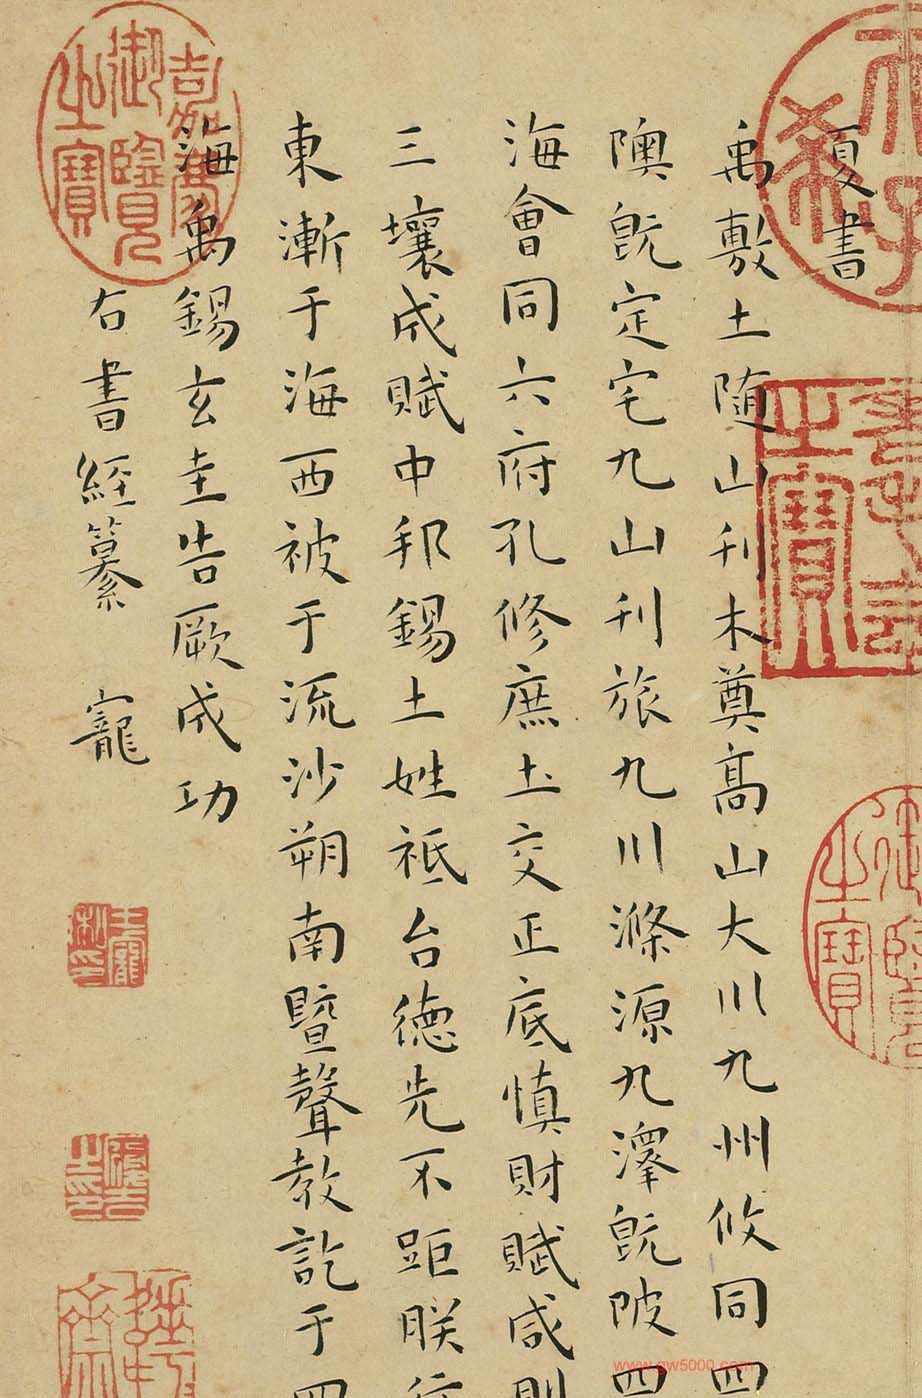 夏書
禹敷土随山刋木奠高山大川九州攸同四
隩旣定宅九山刋旅九川滌源九澤旣陂四
海會同六府孔修庶土交正底慎財賦咸則
三壤成賦中邦錫土姓祗台德先不距朕行
東漸于海西被于流沙朔南曁聲教訖于四
海禹錫玄圭告厥成功
右書經纂 寵
嘉慶御覽之寶
御覽之寶
之寶
王寵私印
www.gw5000.com